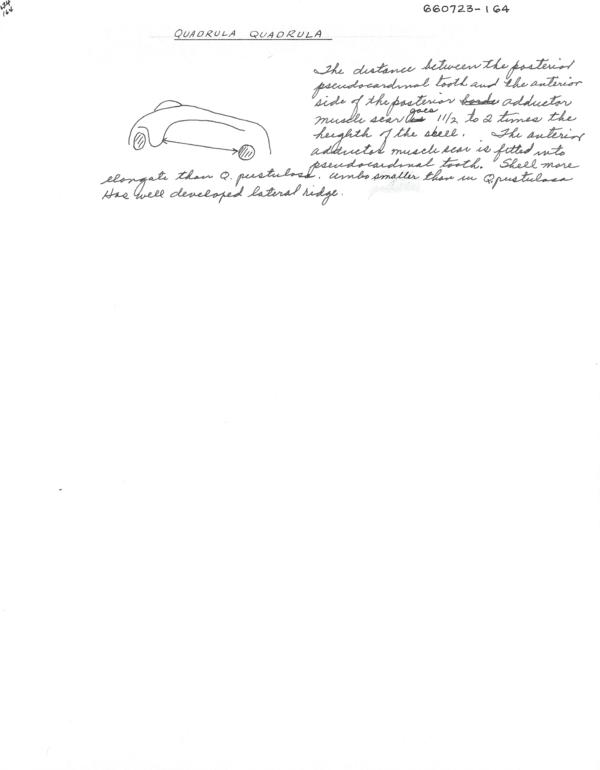 164
660723-164
QUADRULA QUADRULA
The distance between the posterior
pseudocardinal tooth and the anterior
side of the posterior adductor
muscle scar goes 1 1/2 to 2 times the
heighth of the shell. The anterior
adductor muscle scar is fitted into
pseudocardinal tooth. Shell more
elongate than Q. pustulosa. umbo smaller than in Q. pustulosa
Has well developed lateral ridge.